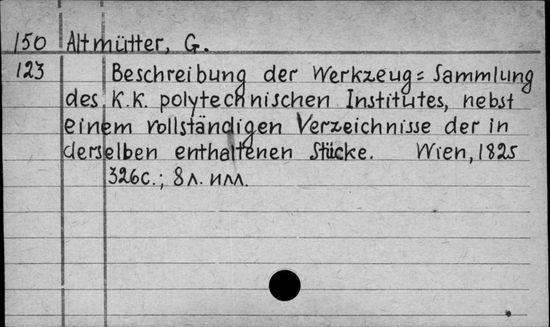 150 Altmütter, G.
123 Beschreibung der Werkzeug= Sammlung
des K.K. polytechnischen Institutes, nebst
einem vollständigen Verzeichnisse der in
derselben enthaltenen Stücke. Wien, 1825
326с.; 8л. илл.